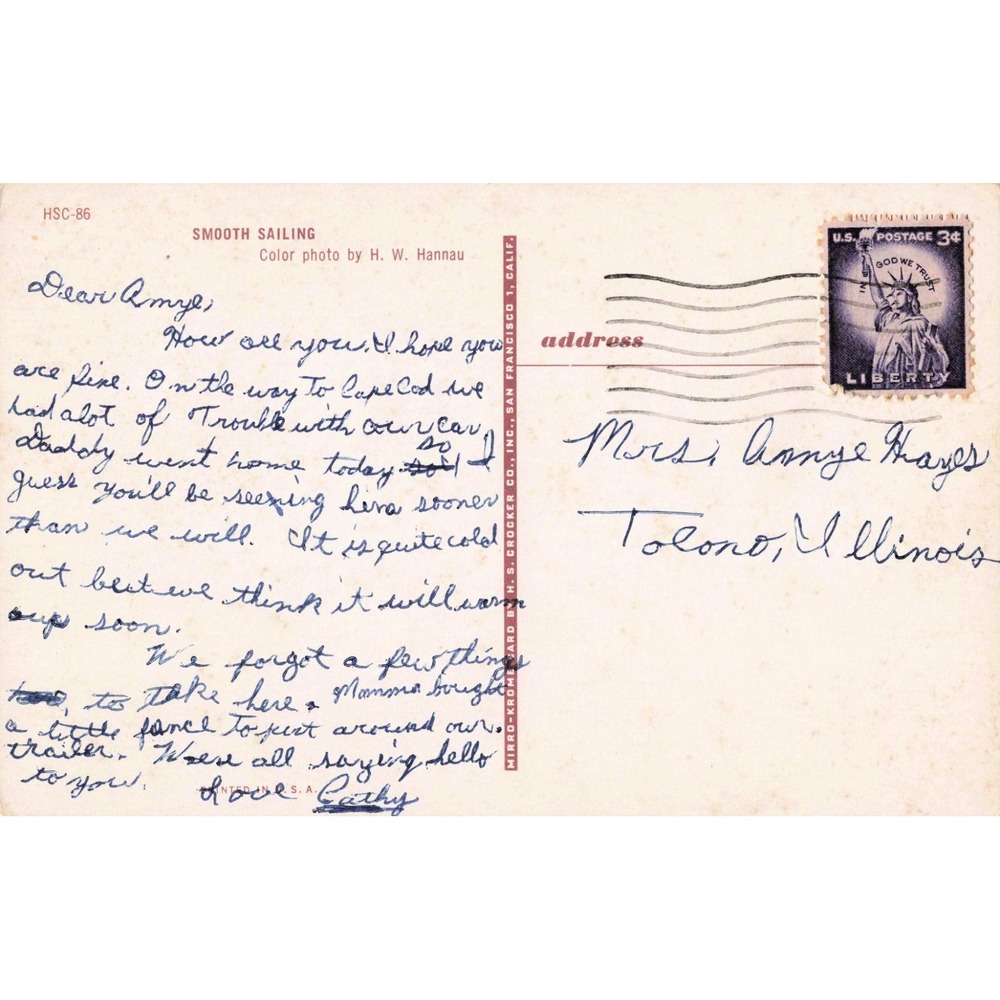 HSC-86
SMOOTH SAILING
Color photo by H. W. Hannau
Dear Amye,
How are you. I hope you
are fine. On the way to Cape Cod we
had alot of Trouble with our car,
Daddy went home today so I
guess you'll be seeing him sooner
than we will. It is quite cold
out but we think it will warm
up soon.
We forgot a few things
to take here. Momma bought
a little fance to put around our
trailer. Were all saying hello
to you.
Love Cathy
PRINTED IN U.S.A.
MIRRO-KROME CARD BY H. S. CROCKER CO., INC., SAN FRANCISCO 1, CALIF.
address
U.S. POSTAGE 3¢
IN GOD WE TRUST
LIBERTY
Mrs. Amye Hayes
Tolono, Illinois